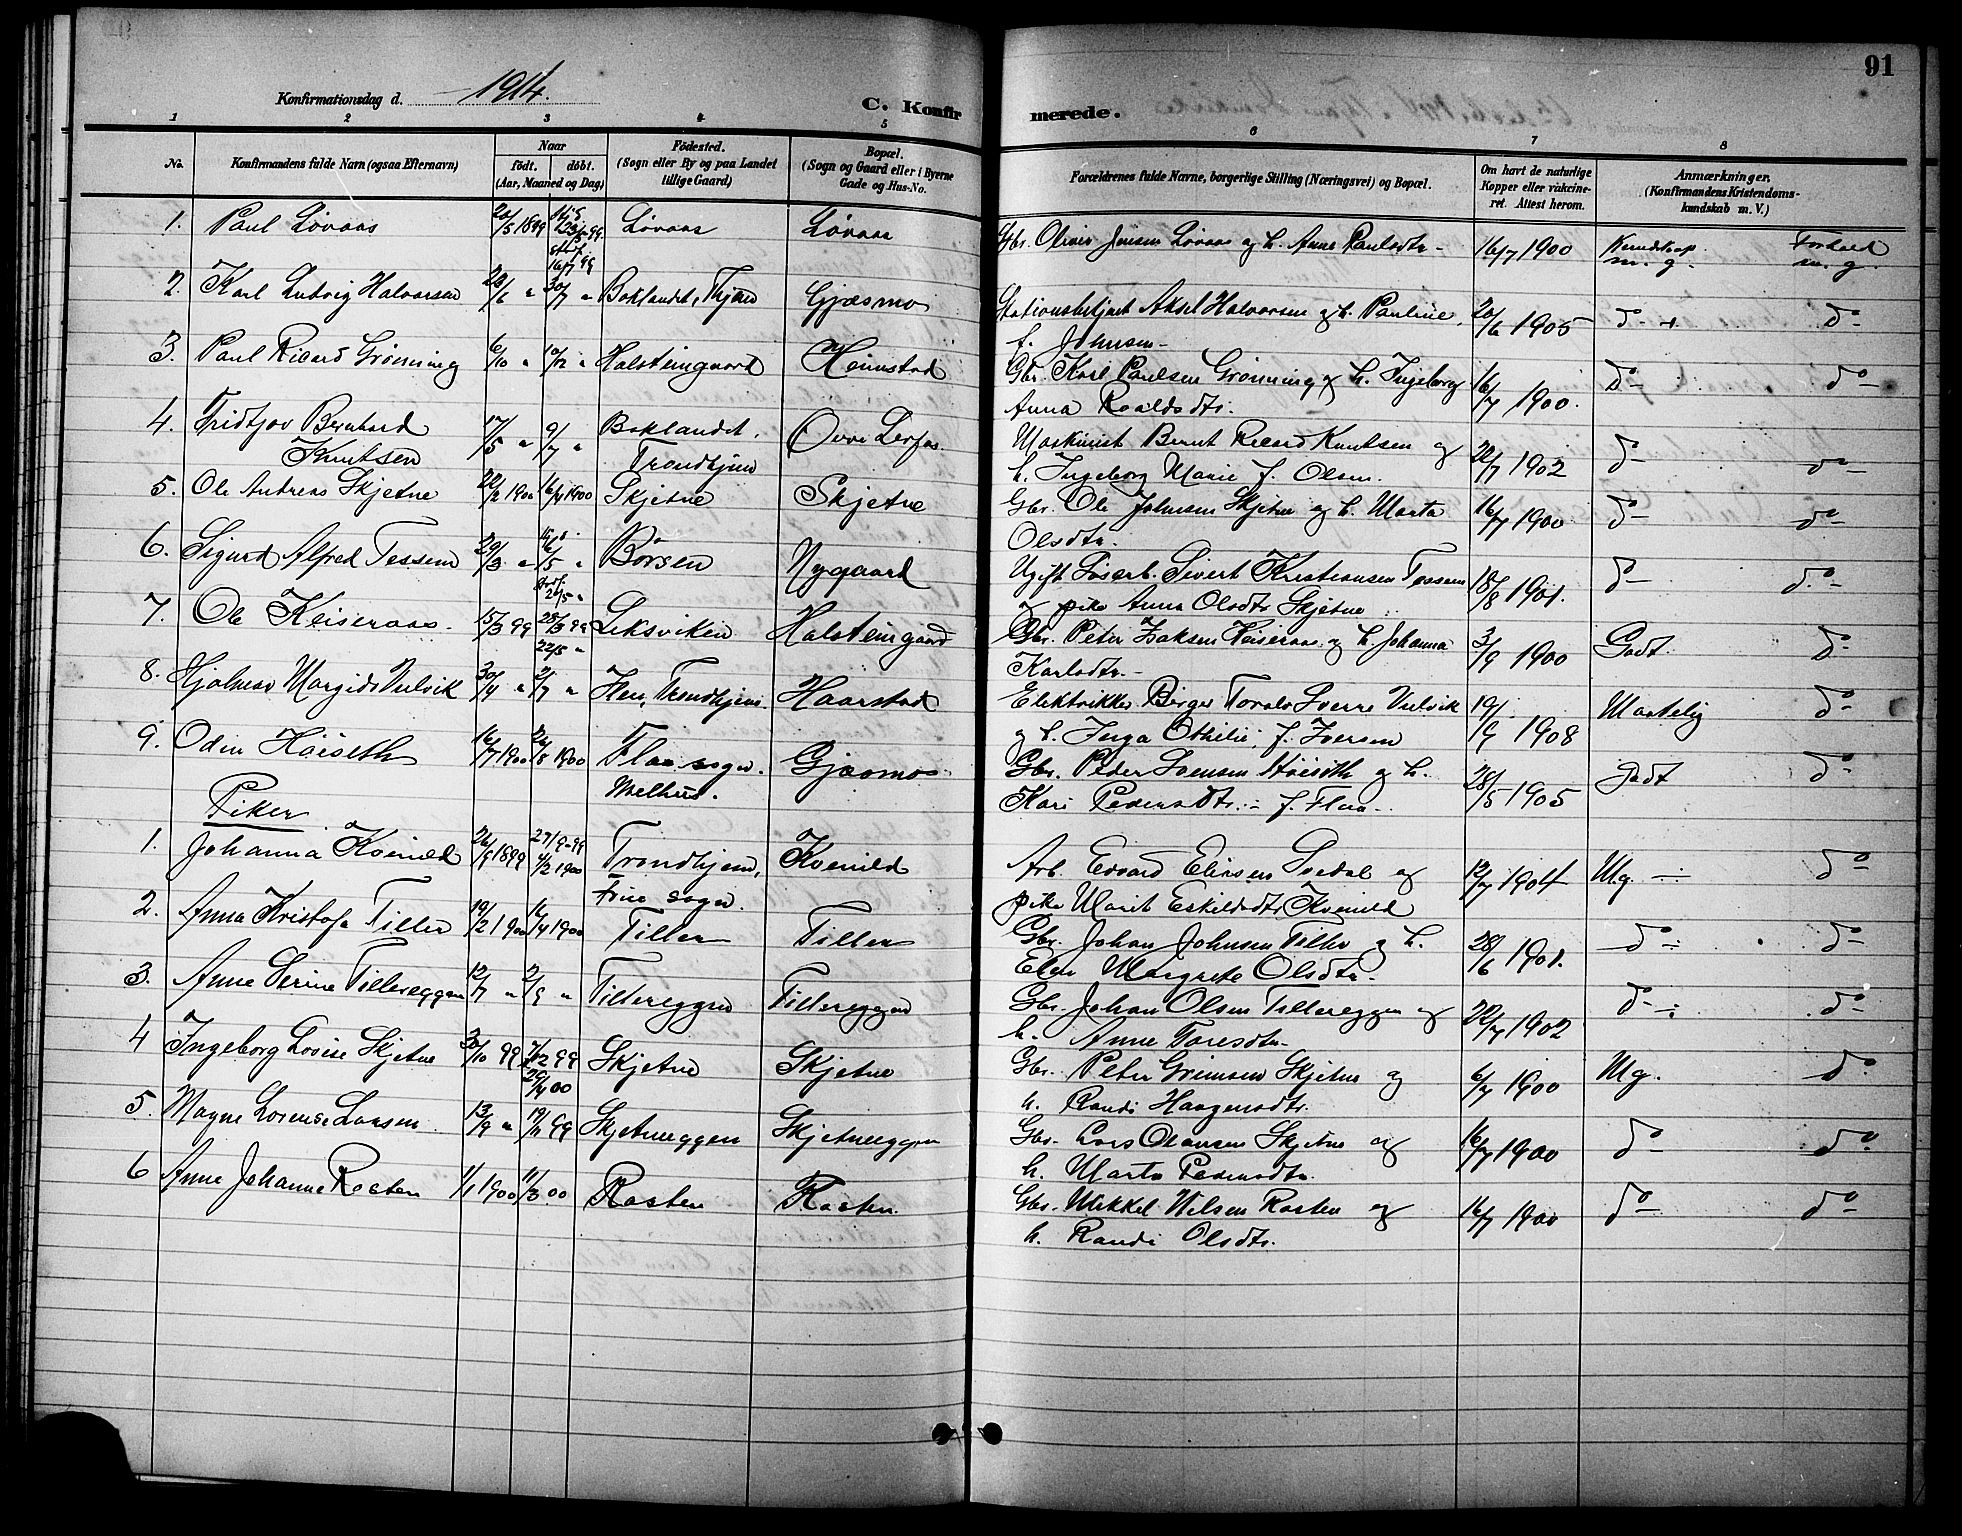 91
Konfirmationsdag d. 1914.
C. Konfirmerede.
1 2 3 4 5 6 7 8
No. Konfirmandens fulde Navn (ogsaa Efternavn) Naar født. døbt. (Aar, Maaned og Dag) Fødested. (Sogn eller By og paa Landet tillige Gaard) Bopæl. (Sogn og Gaard eller i Byerne Gade og Hus-No. Forældrenes fulde Navne, borgerlige Stilling (Næringsvei) og Bopæl. Om havt de naturlige Kopper eller vakcineret. Attest herom. Anmærkninger, (Konfirmandens Kristendomskundskab m. V.)
1. Paul Løvaas 20/5 1899 Løvaas Løvaas Gbr. Oliver Jensen Løvaas og h. Anne Paulsdtr. 16/7 1900 Kundskap m. g. Forhold m. g.
2. Karl Ludvig Halvorsen 20/6 " 30/7 " Baklandet, Thjem Gjæsmo Stationsbetjent Aksel Halvorsen og h. Pauline
f. Johnsen 20/6 1905 do do
3. Paul Ricard Grønning 6/10 " 10/12 " Halsteingaard Heimstad Gbr. Karl Paulsen Grønning og h. Ingeborg
Anna Roaldsdtr. 16/7 1900. do do
4. Fridtjov Bernhard
Knutsen 17/5 " 9/7 " Baklandet.
Trondhjem Øvre Lerfos Maskinist Bernt Ricard Knutsen og
h. Ingeborg Marie f. Olsen. 22/7 1902 do do
5. Ole Andreas Skjetne 22/2 1900 16/4 1900 Skjetne Skjetne Gbr. Ole Johnsen Skjetne og h. Marta
Olsdtr. 16/7 1900 do do
6. Sigurd Alfred Tessem 29/3 " Børsen Nygaard Ugift Løsarb. Sivert Kristiansen Tessem
og pike Anna Olsdtr Skjetne 18/8 1901. do do
7. Ole Keiseraas 15/3 99 Leksviken Halsteingaard Gbr. Peter Isaksen Keiseraas og h. Johanna
Karlsdtr. 3/9 1900 Godt do
8. Hjalmar Margido Vulvik 30/4 " 2/7 " Trondhjem Haarstad Elektriker Birger Torals Sverre Vulvik
og h. Inga Othilie, f. Iversen 19/9 1908 Maatelig do
9. Odin Høiseth 16/7 1900 26/8 1900 Flaa sogn.
Melhus. Gjæsmo Gbr. Peder Svensen Høiseth og h.
Kari Pedersdtr. f. Flaa 28/5 1905 Godt do
Piker
1. Johanna Kvenild 26/9 1899 27/9-99
4/2 1900 Trondhjem,
Frue sogn. Kvenild Arb. Edvard Eliasen Svedal og
pike Marit Eskildsdtr Kvenild 12/7 1904 Mg do
2. Anna Kristofa Tiller 19/2 1900 16/4 1900 Tiller Tiller Gbr. Johan Johnsen Tiller og h.
Elen Margrete Olsdtr. 28/6 1901. do do
3. Anne Serine Tillereggen 12/7 " 2/9 " Tillereggen Tillereggen Gbr. Johan Olsen Tillereggen og
h. Anne Toresdtr. 22/7 1902 do do
4 Ingeborg Lovise Skjetne 30/10 99 Skjetne Skjetne Gbr. Peter Grimsen Skjetne og
h. Randi Haagensdtr. 6/7 1900 Mg. do
5. Magne Lorense Larsen 13/9 " 19/11 99 Skjetneeggen Skjetneeggen Gbr. Lars Olausen Skjetne og
h. Marta Pedersdtr. 16/7 1900 do do
6 Anne Johanne Rosten 1/1 1900 11/3 00 Rosten Rosten Gbr. Mikkel Nilsen Rosten og
h. Randi Olsdtr. 16/7 1900 do do